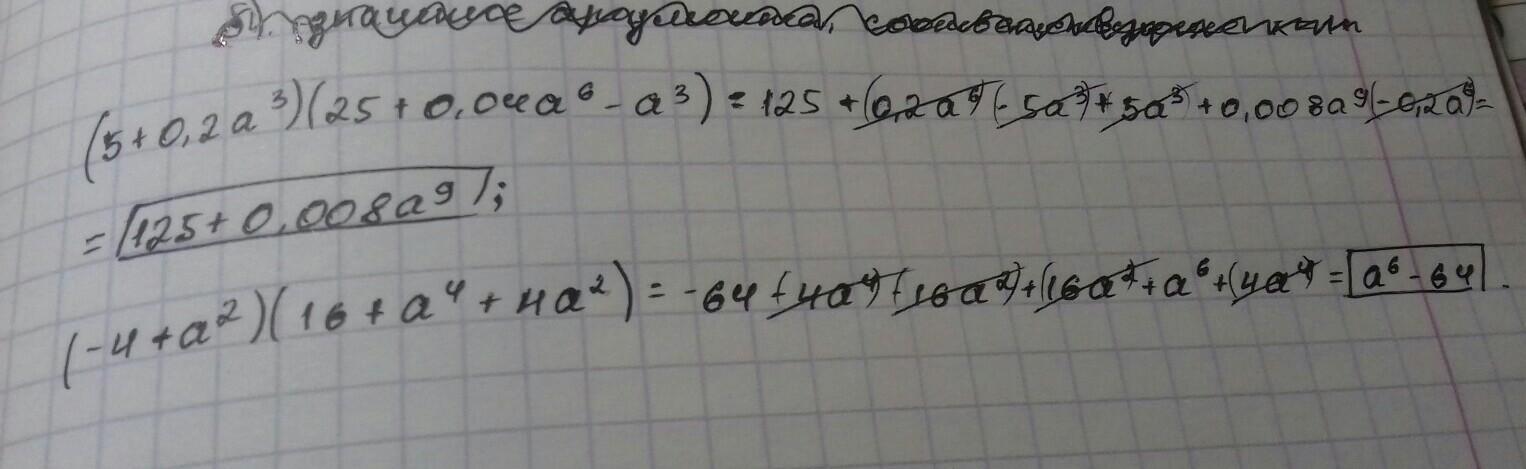 (5+0,2a³)(25+0,04a⁶-a³)=125+(0,2a⁶)(-5a³)+5a³+0,008a⁹(-0,2a⁶)=
=125+0,008a⁹;
(-4+a²)(16+a⁴+4a²)=-64(-4a⁴)(-16a²)+(16a²+a⁶+(4a⁴)=a⁶-64.